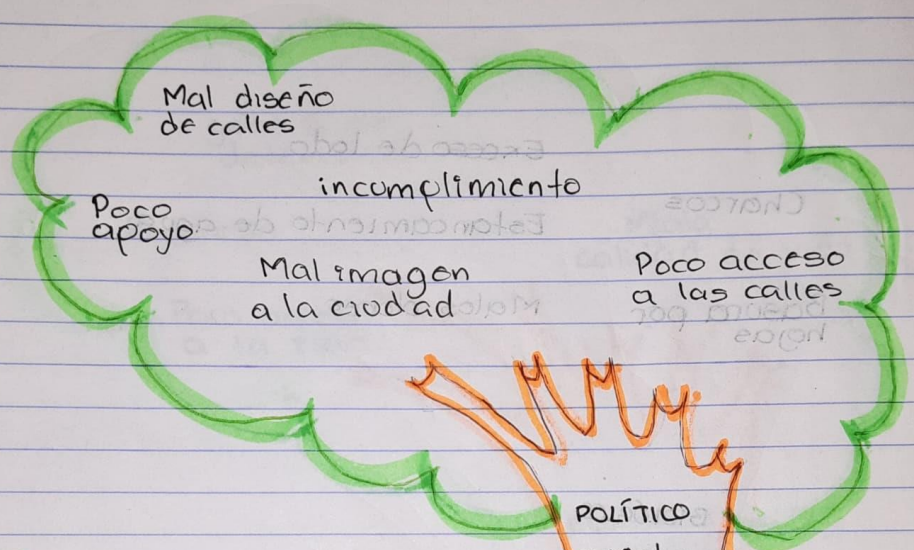 Mal diseño
de calles
incumplimiento
Poco
apoyo
Mal imagen
a la ciudad
Poco acceso
a las calles
POLÍTICO